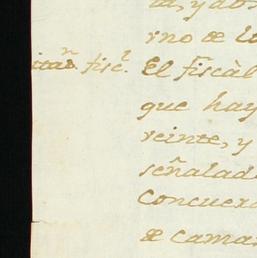 rno de lo
fisc.l El fiscàl
que hay
veinte, y
señalad
Concuer
de cama